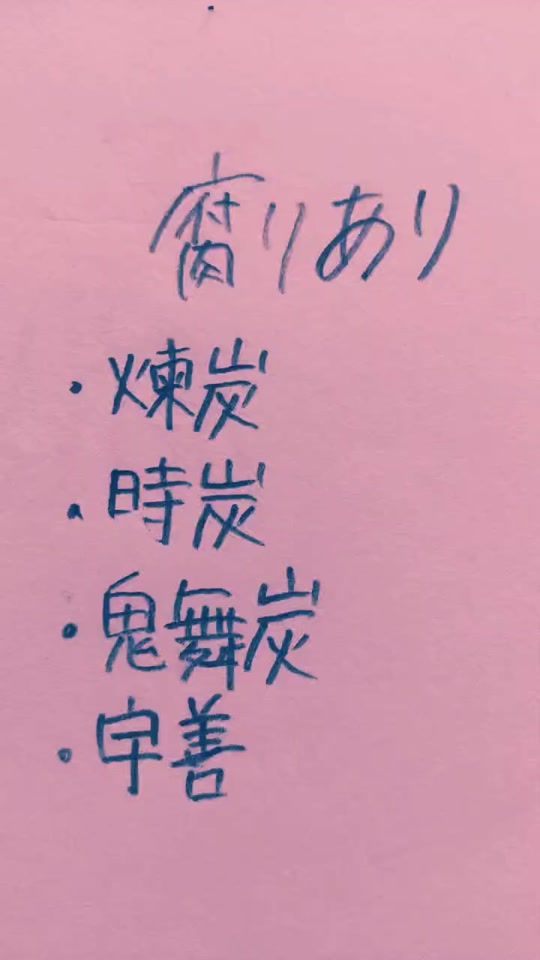 腐りあり
・煉炭
・時炭
・鬼舞炭
・宇善